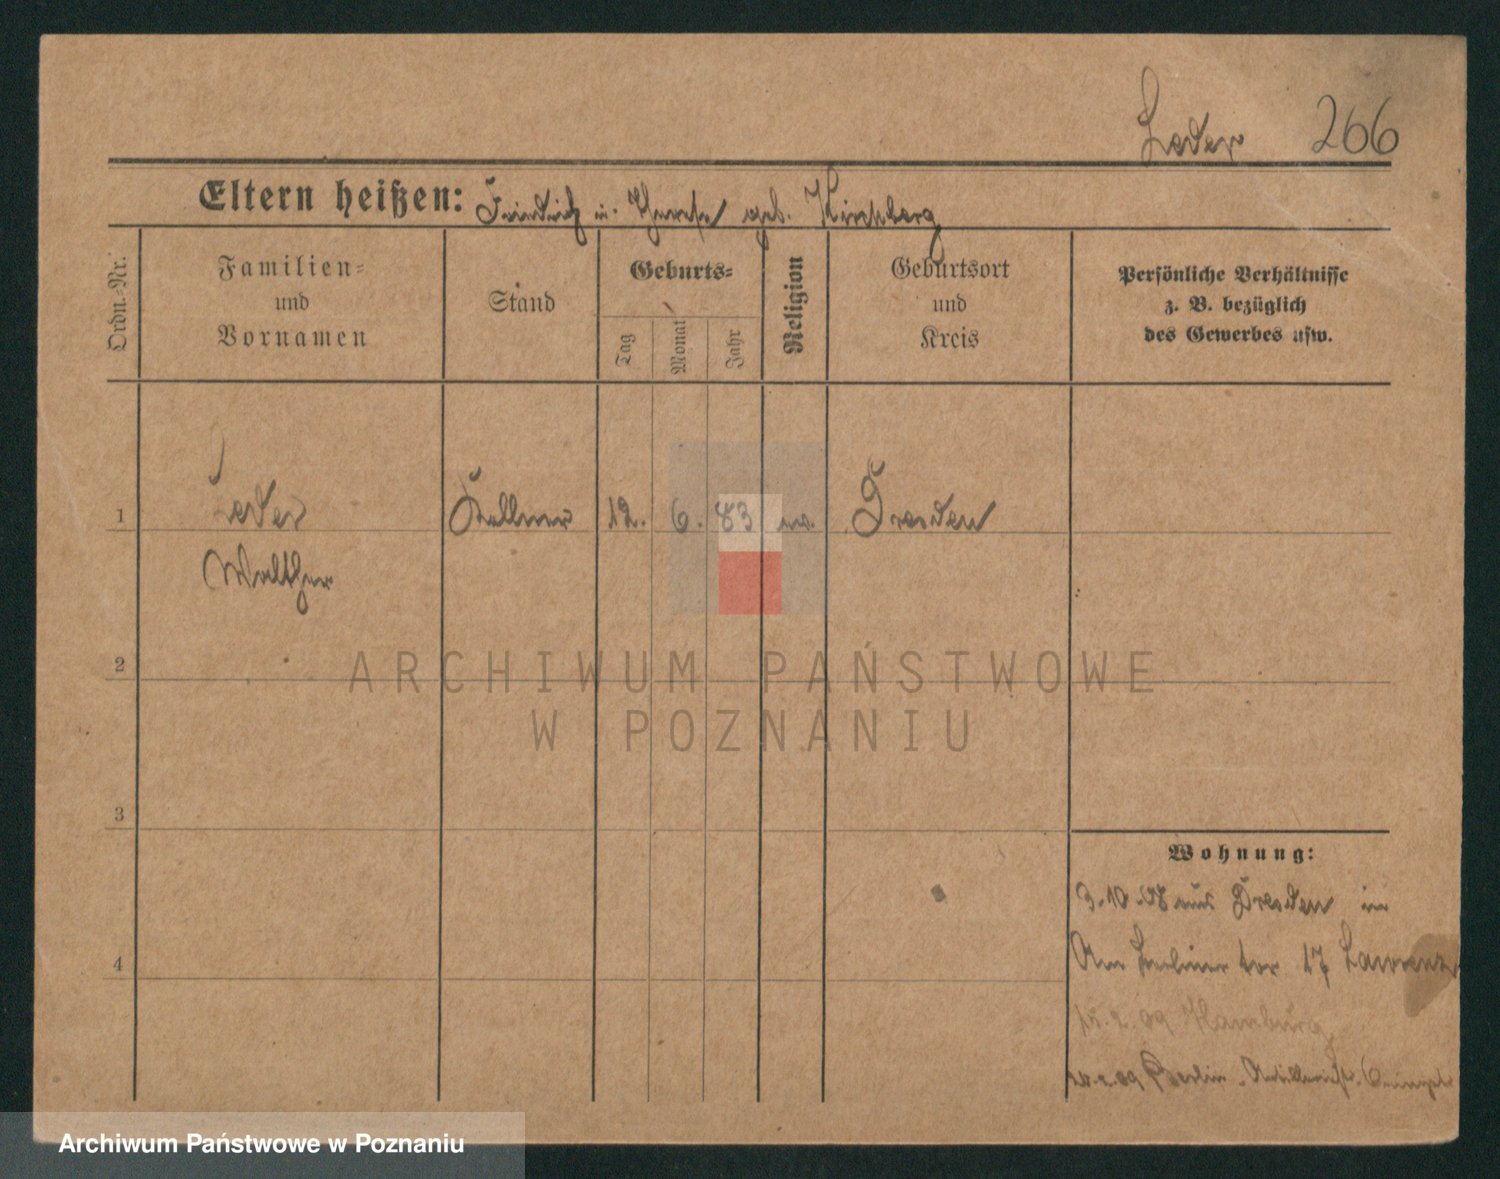 Leder 266
Eltern heißen: Friedrich u. Therese geb. Kirschberg
Ordn.-Nr.
Familien-
und
Vornamen
Stand
Geburts-
Tag
Monat
Jahr
Religion
Geburtsort
und
Kreis
Persönliche Verhältnisse
z. B. bezüglich
des Gewerbes usw.
1 Leder Kellner 12. 6. 83 ev. Dresden
Walther
2
ARCHIWUM PAŃSTWOWE
W POZNANIU
3
Wohnung:
3.10.08 aus Dresden in
4
Am Berliner tor 17 Lawrenz
15.2.09 Hamburg
09 Berlin
Archiwum Państwowe w Poznaniu